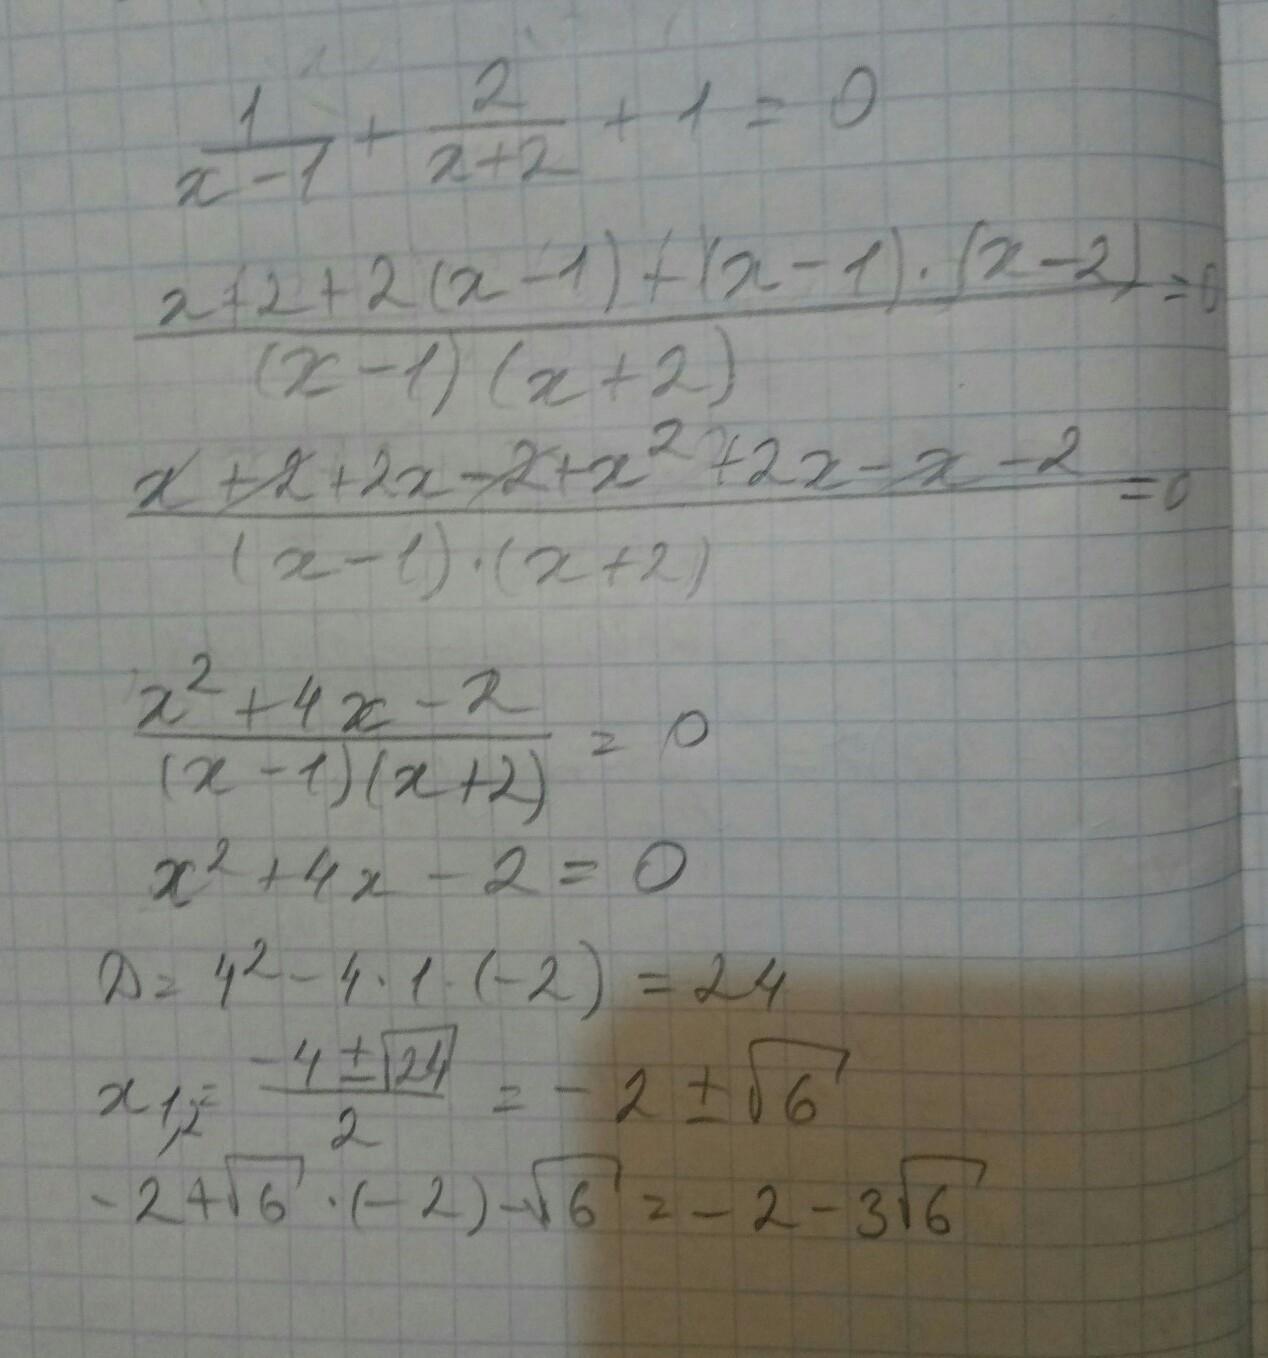 1/(x-1) + 2/(x+2) + 1 = 0
(x+2+2(x-1)+(x-1)·(x-2))/((x-1)(x+2)) = 0
(x+2+2x-2+x²+2x-x-2)/((x-1)·(x+2)) = 0
(x²+4x-2)/((x-1)(x+2)) = 0
x²+4x-2=0
D= 4²-4·1·(-2) = 24
x₁,₂= (-4±√24)/2 = -2±√6
-2+√6·(-2)-√6 = -2-3√6